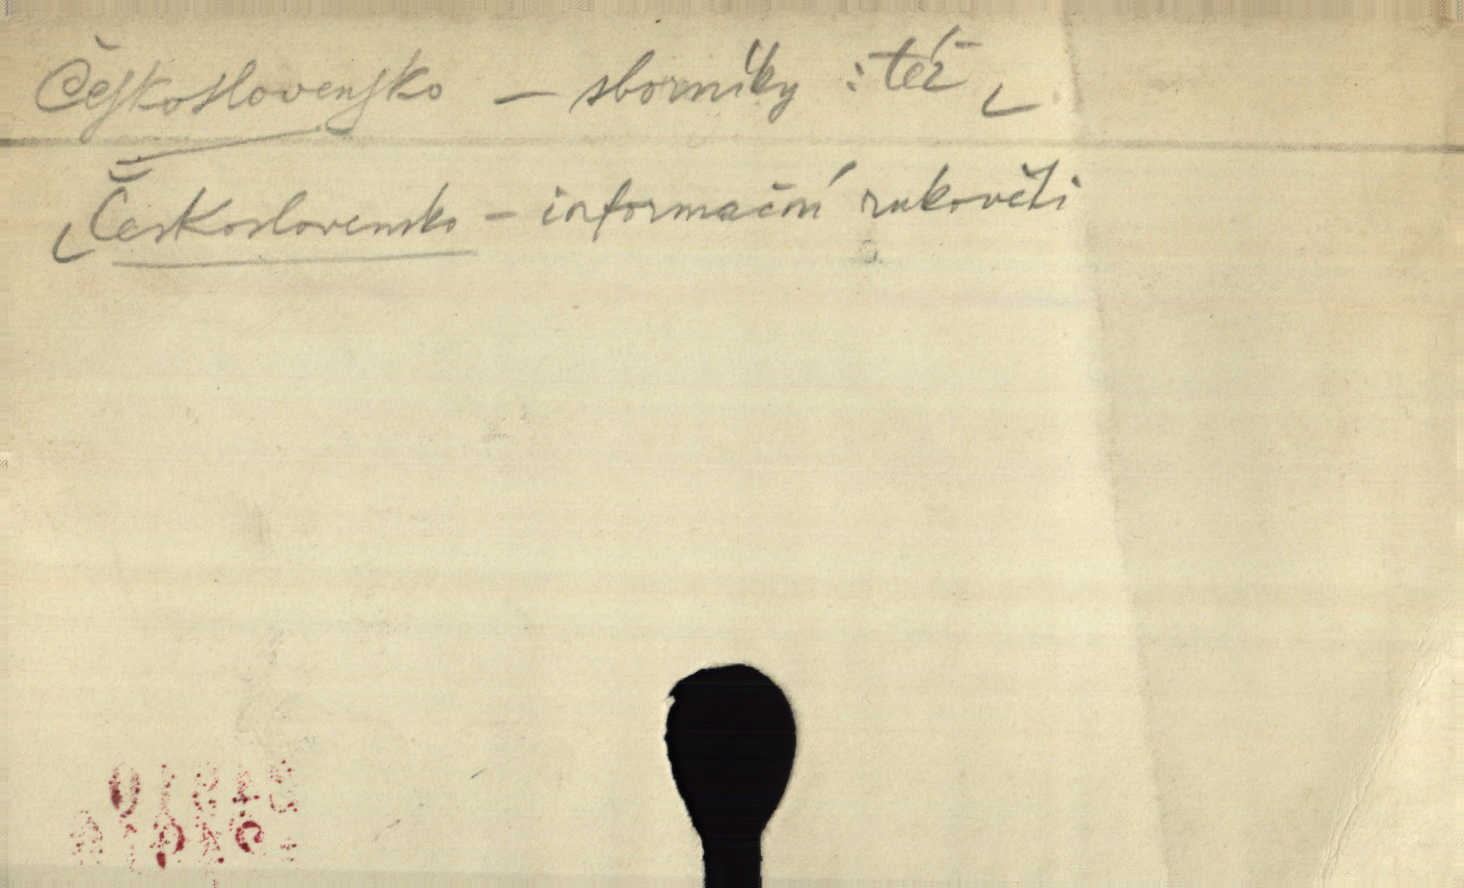 Československo – sborníky : též
Československo – informační rukověti